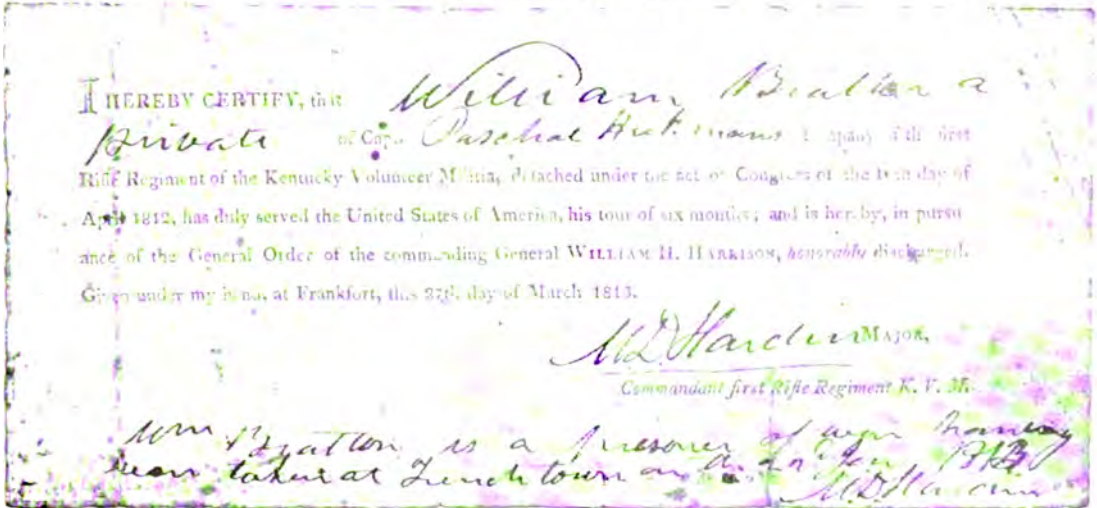 I HEREBY CERTIFY, that William Bratton a
private of Capt. Paschal Hickmans Company of the first
Rifle Regiment of the Kentucky Volunteer Militia, detached under the act of Congress of the tenth day of
April 1812, has duly served the United States of America, his tour of six months; and is hereby, in pursu
ance of the General Order of the commanding General WILLIAM H. HARRISON, honorably discharged.
Given under my hand, at Frankfort, this 27th. day of March 1813.
M D Hardin MAJOR,
Commandant first Rifle Regiment K. V. M.
Wm Bratton is a prisoner of war having
been taken at Frenchtown on
M D Hardin